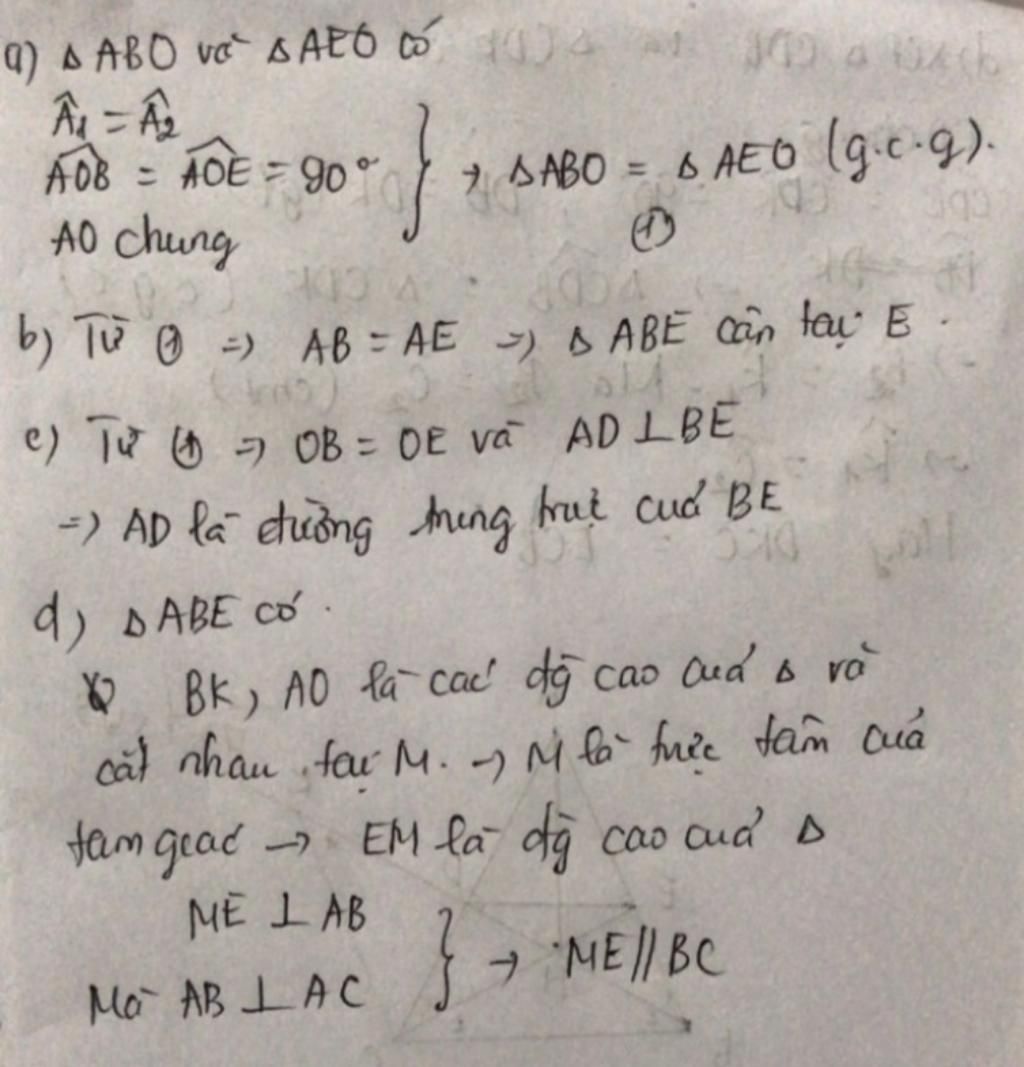 a) Δ ABO và Δ AEO có
Â₁ = Â₂
AOB = AOE = 90°
AO chung
} → Δ ABO = Δ AEO (g.c.g).
①
b) Từ ① => AB = AE => Δ ABE cân tại E.
c) Từ ① => OB = OE và AD ⊥ BE
=> AD là đường trung trực của BE
d) Δ ABE có.
BK, AO là các đg cao của Δ và
cắt nhau tại M. → M là trực tâm của
tam giác → EM là đg cao của Δ
ME ⊥ AB
Mà AB ⊥ AC
} → ME // BC